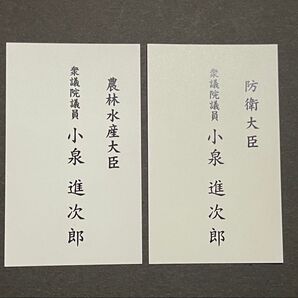 農林水産大臣
衆議院議員 小泉 進次郎
防衛大臣
衆議院議員 小泉 進次郎